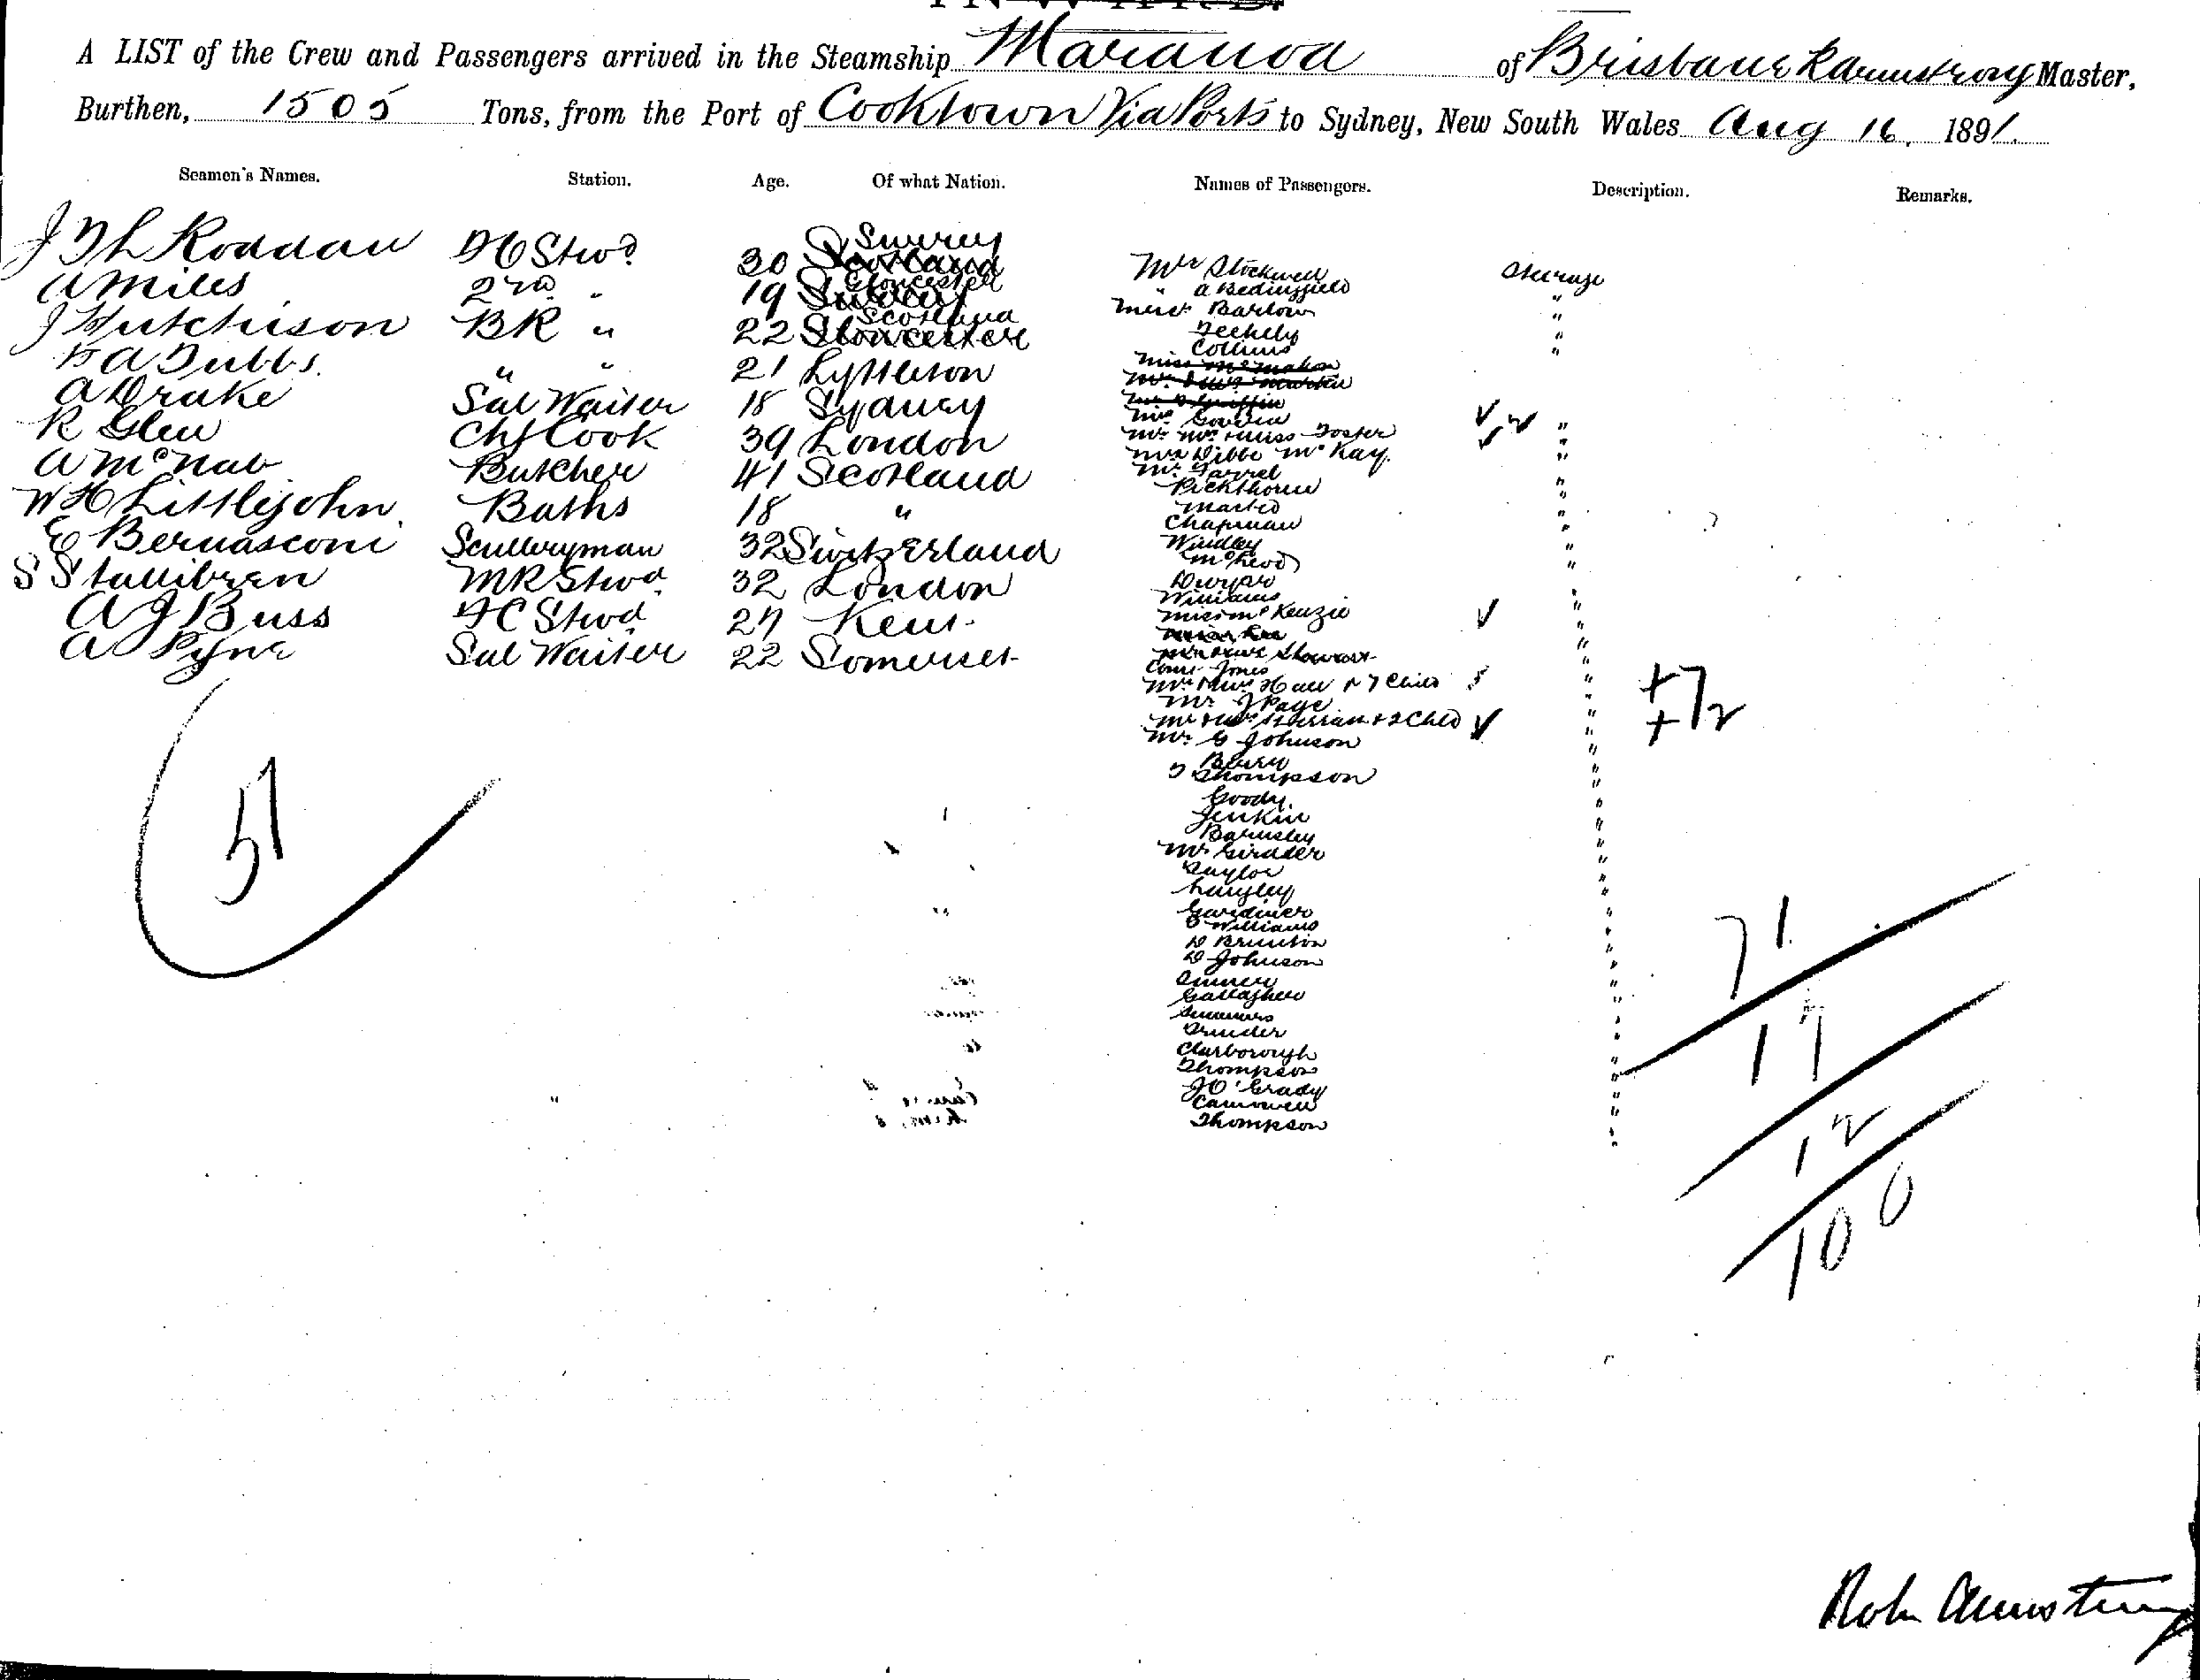 A LIST of the Crew and Passengers arrived in the Steamship Maranoa of Brisbane R Armstrong Master,
Burthen, 1505 Tons, from the Port of Cooktown Via Ports to Sydney, New South Wales Aug 16. 1891.
Seamen's Names. Station. Age. Of what Nation. Names of Passengers. Description. Remarks.
Roddan Stwd 30 Surrey
A Miles 2nd " 19 Gloucester
J Hutchison BR " 22 Scotland
Tubbs. " " 21 Lyttleton
A Drake Sal Waiter 18 Sydney
R Glen Chf Cook 39 London
A McNab Butcher 41 Scotland
W H Littlejohn Baths 18 "
E Bernasconi Sculleryman 32 Switzerland
S Stallibren MR Stwd. 32 London
A J Buss FC Stwd 27 Kent
A Pyne Sal Waiter 22 Somerset
Mr Stockwell Steerage
" A Bedingfield "
Barlow "
"
Collins "
Miss McMahon
Mrs Gowen
Mr Mrs & Miss Foster "
McKay "
Mr Farrel "
Pickthorne "
"
Chapman "
Windley "
McLeod "
Dwyer "
Williams "
Miss McKenzie "
Jones
Mr & Mrs Hall & 7 Child
Mr J Page
+7
+ 2
Mr G Johnson
Thompson
Goody.
Jenkin
Barnsley
Mr Girdler
Taylor
Langley
Gardiner
Williams
D Brinton
D Johnson
Gallagher
Summers
Clarborough
Thompson
J O'Grady
Thompson
51
71
17
12
100
Robt Armstrong